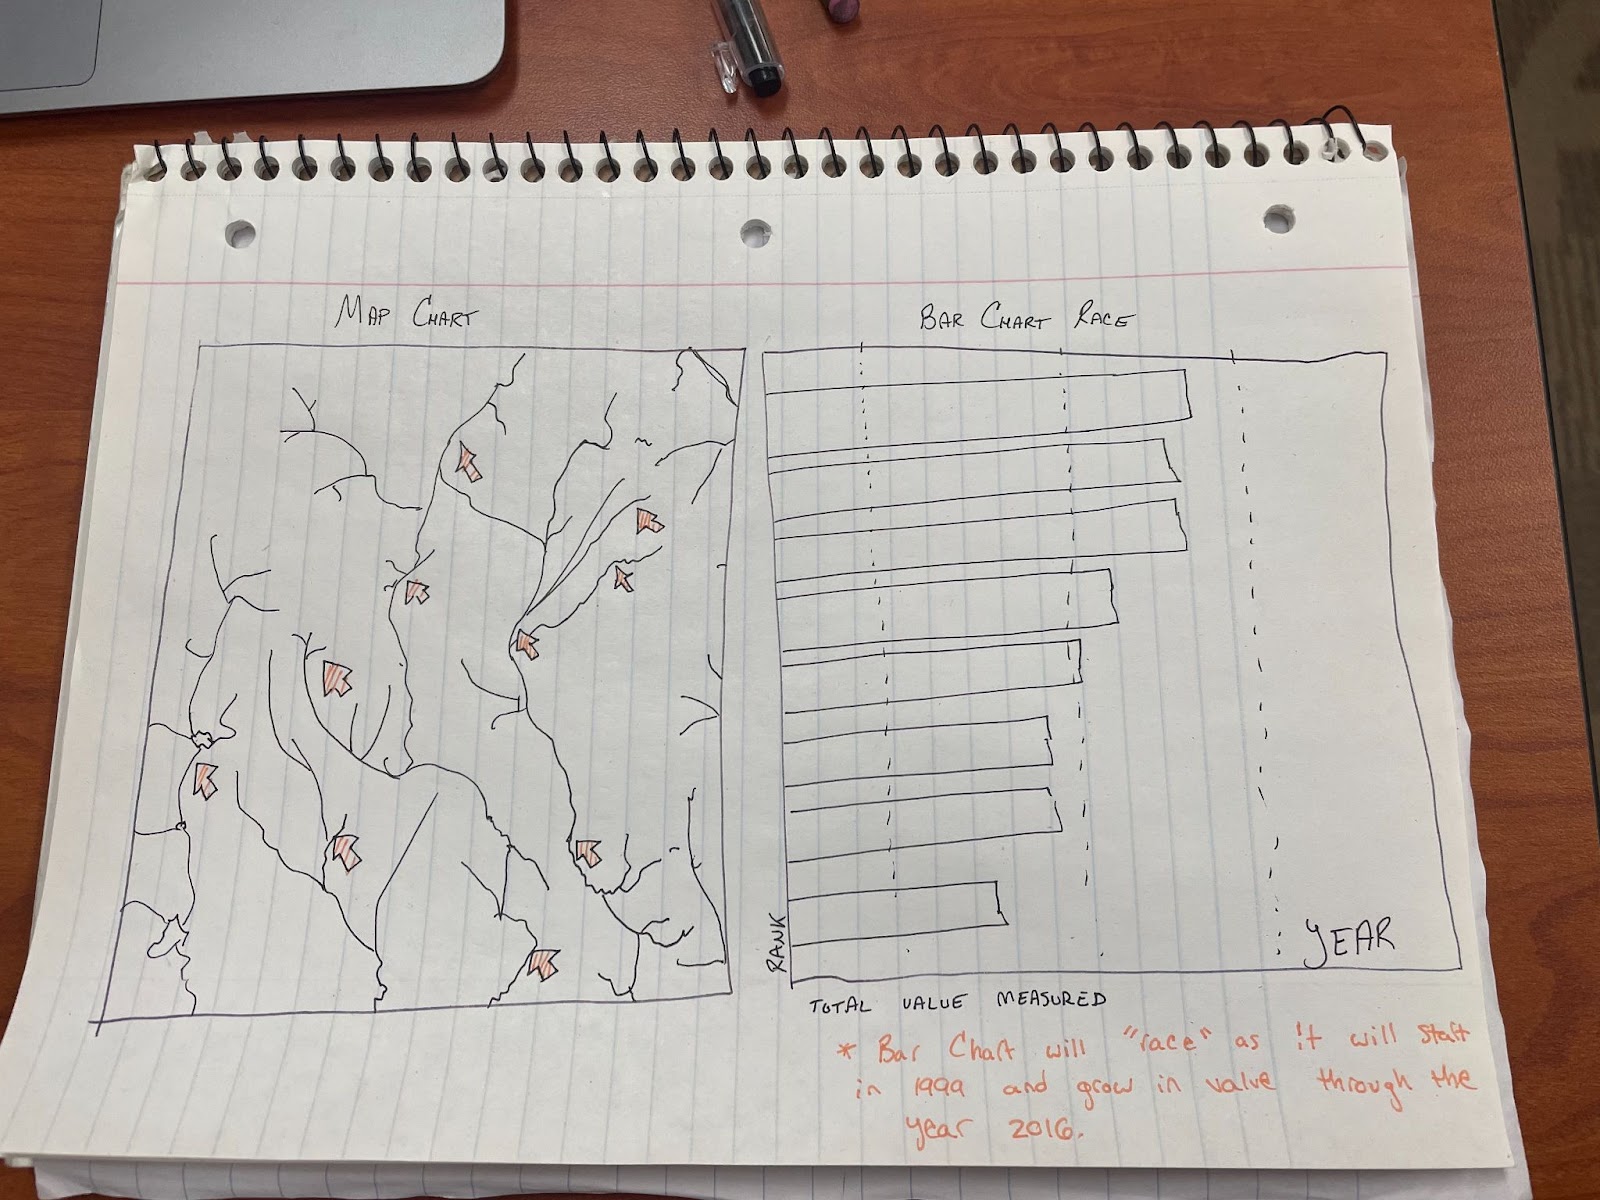 MAP CHART
BAR CHART RACE
RANK
YEAR
TOTAL VALUE MEASURED
* Bar Chart will "race" as it will start
in 1999 and grow in value through the
year 2016.